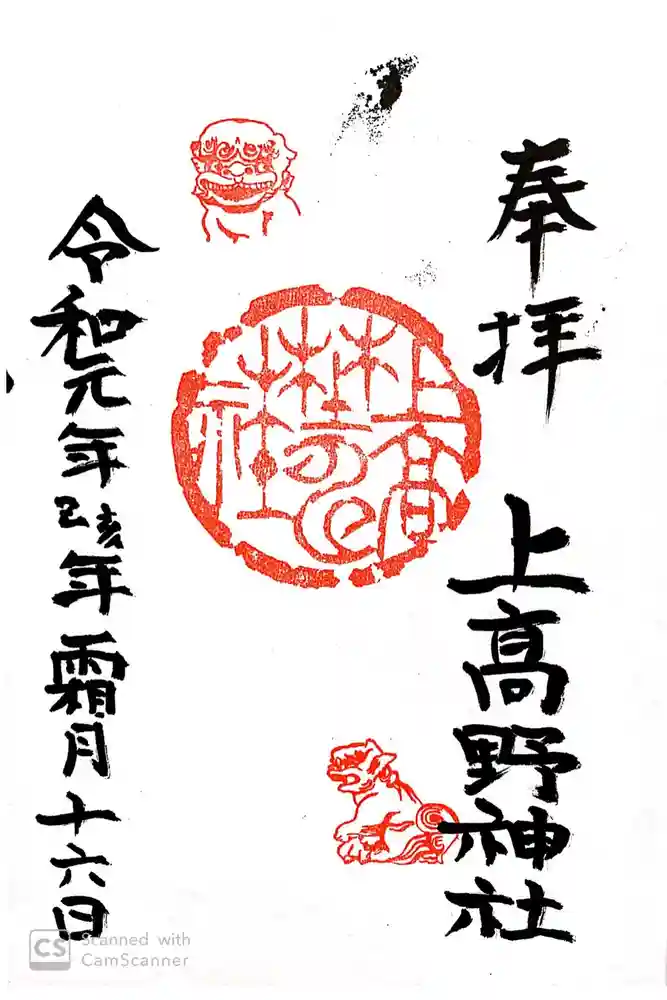 奉拝
上高野神社
上高埜神社
令和元年己亥年霜月十六日
CS Scanned with
CamScanner